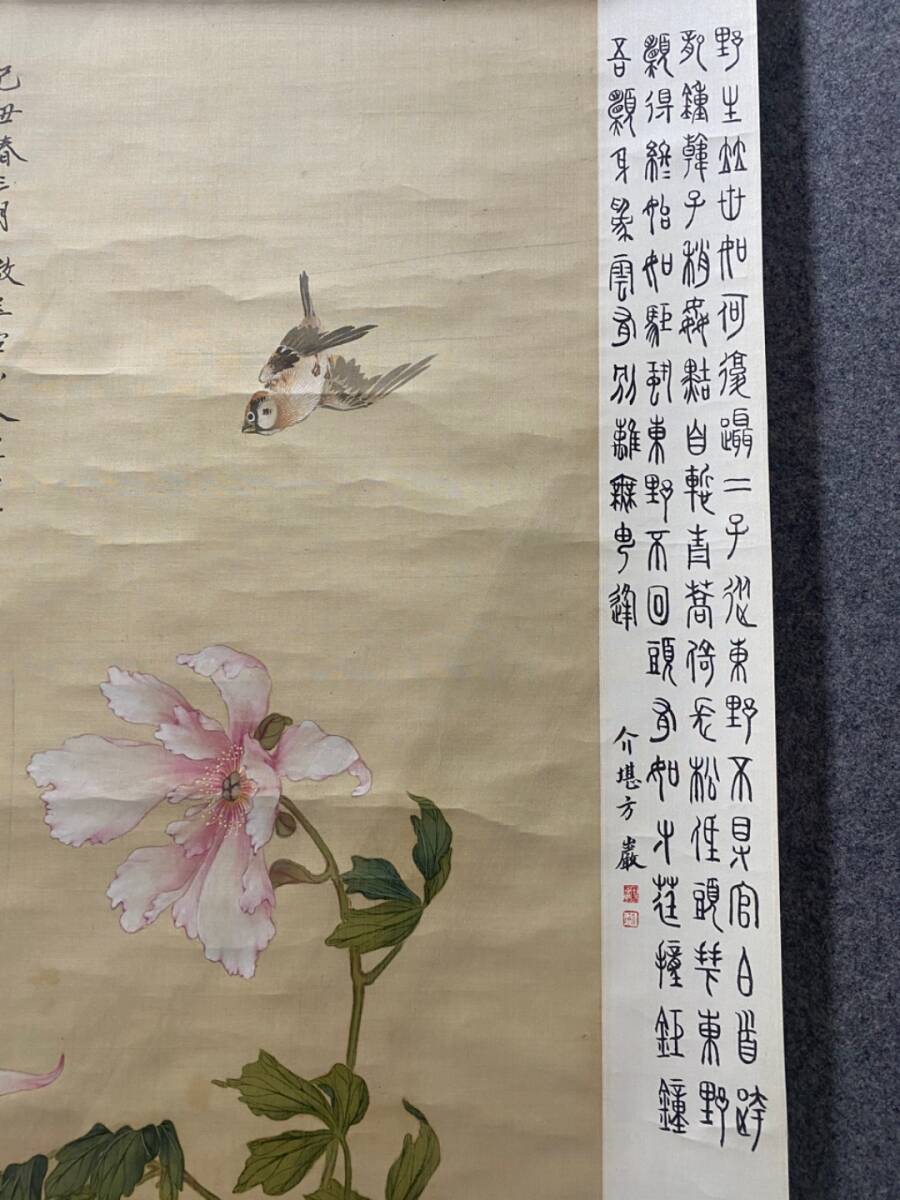 野生竝世如何復躡二子從東野不㝵官白首跨
龍鍾韓子稍姦黠自慙青蒿倚長松低頭拜東野
顠得終始如駏蛩東野不回頭有如寸莛撞鉅鐘
吾顠身為雲有別離無由逢
介堪方巖
己丑春三月